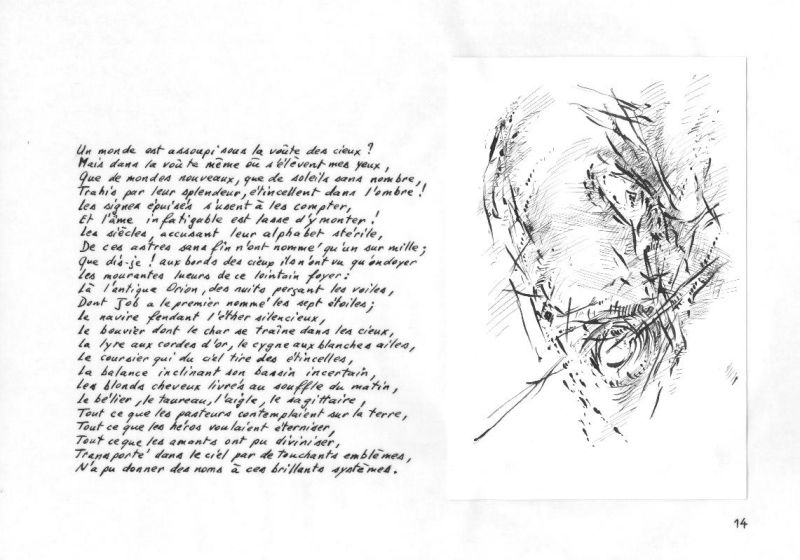 Un monde est assoupi sous la voûte des cieux ?
Mais dans la voûte même où s'élèvent mes yeux,
Que de mondes nouveaux, que de soleils sans nombre,
Trahis par leur splendeur, étincellent dans l'ombre !
Les signes épuisés s'usent à les compter,
Et l'âme infatigable est lasse d'y monter !
Les siècles, accusant leur alphabet stérile,
De ces astres sans fin n'ont nommé qu'un sur mille ;
Que dis-je ! aux bords des cieux ils n'ont vu qu'ondoyer
Les mourantes lueurs de ce lointain foyer :
Là l'antique Orion, des nuits perçant les voiles,
Dont Job a le premier nommé les sept étoiles ;
Le navire fendant l'éther silencieux,
Le bouvier dont le char se traîne dans les cieux,
La lyre aux cordes d'or, le cygne aux blanches ailes,
Le coursier qui du ciel tire des étincelles,
La balance inclinant son bassin incertain,
Les blonds cheveux livrés au souffle du matin,
Le bélier, le taureau, l'aigle, le sagittaire,
Tout ce que les pasteurs contemplaient sur la terre,
Tout ce que les héros voulaient éterniser,
Tout ce que les amants ont pu diviniser,
Transporté dans le ciel par de touchants emblèmes,
N'a pu donner des noms à ces brillants systèmes.
14